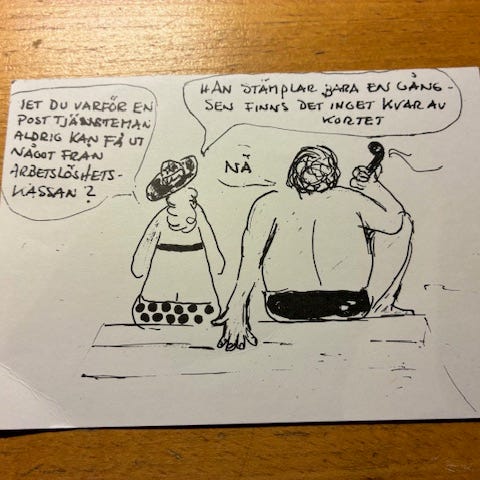 VET DU VARFÖR EN
POST TJÄNSTEMAN
ALDRIG KAN FÅ UT
NÅGOT FRÅN
ARBETSLÖSHETS-
KASSAN?
NÄ
HAN STÄMPLAR BARA EN GÅNG -
SEN FINNS DET INGET KVAR AV
KORTET